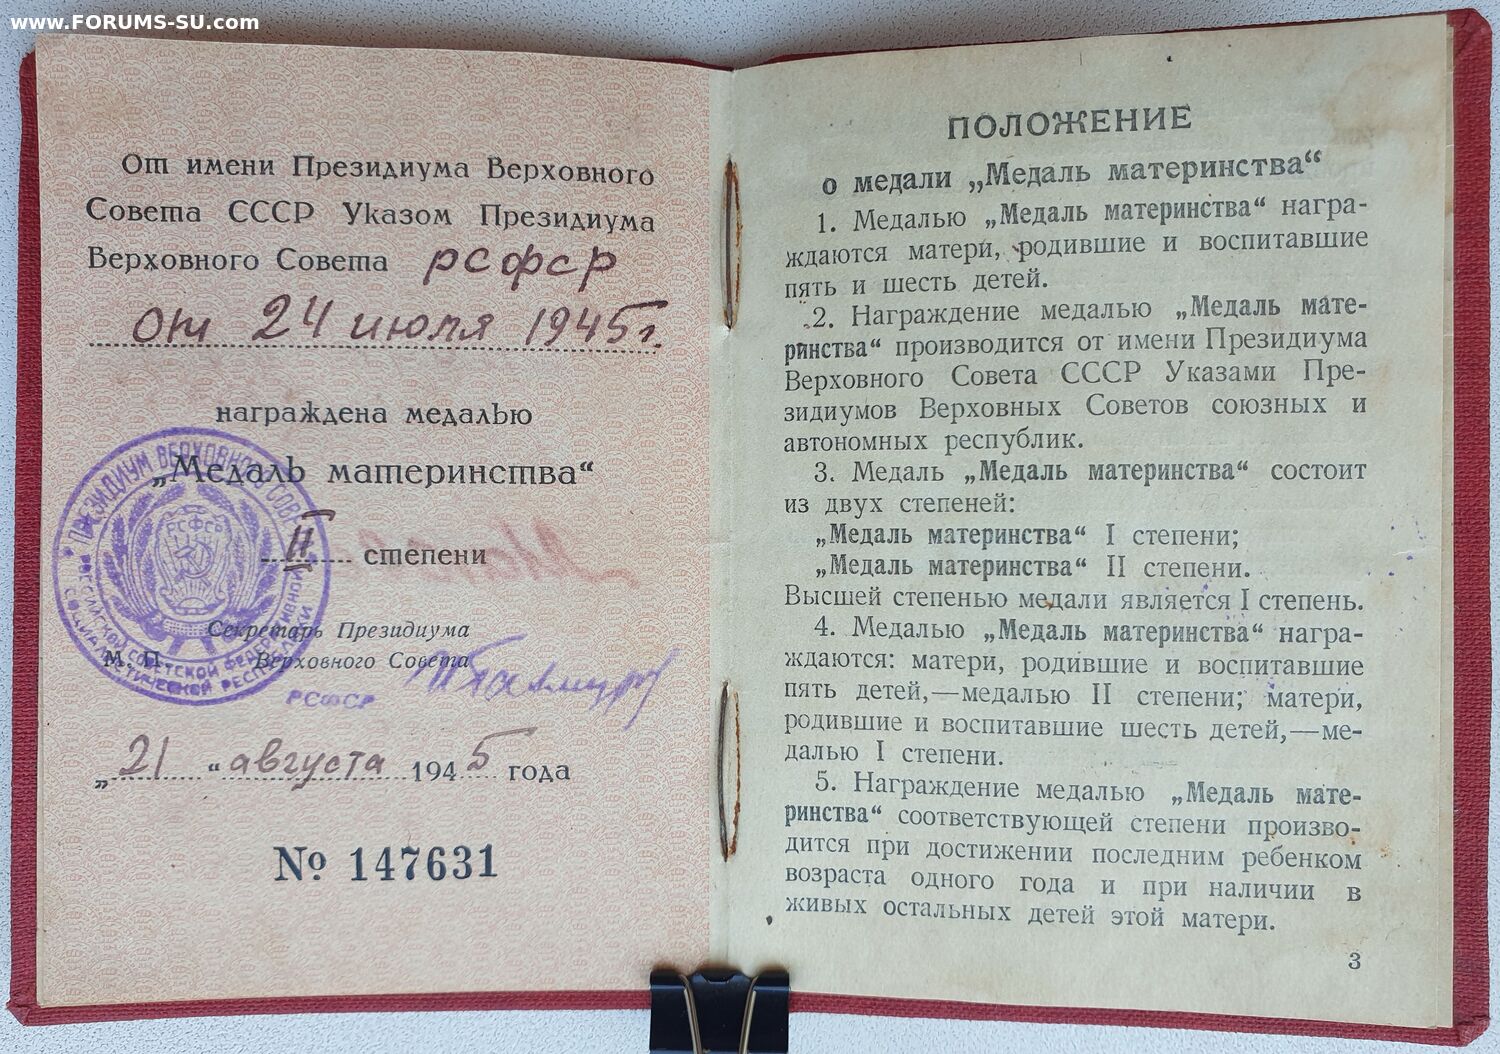 www.FORUMS-SU.com
От имени Президиума Верховного
Совета СССР Указом Президиума
Верховного Совета РСФСР
от 24 июля 1945 г.
награждена медалью
„Медаль материнства“
II степени
Секретарь Президиума
М. П. Верховного Совета
РСФСР
„21“ августа 1945 года
№ 147631
ПРЕЗИДИУМ ВЕРХОВНОГО СОВЕТА
РОССИЙСКОЙ СОВЕТСКОЙ ФЕДЕРАТИВНОЙ
СОЦИАЛИСТИЧЕСКОЙ РЕСПУБЛИКИ
РСФСР
ПОЛОЖЕНИЕ
о медали „Медаль материнства“
1. Медалью „Медаль материнства“ награ-
ждаются матери, родившие и воспитавшие
пять и шесть детей.
2. Награждение медалью „Медаль мате-
ринства“ производится от имени Президиума
Верховного Совета СССР Указами Пре-
зидиумов Верховных Советов союзных и
автономных республик.
3. Медаль „Медаль материнства“ состоит
из двух степеней:
„Медаль материнства“ I степени;
„Медаль материнства“ II степени.
Высшей степенью медали является I степень.
4. Медалью „Медаль материнства“ награ-
ждаются: матери, родившие и воспитавшие
пять детей,—медалью II степени; матери,
родившие и воспитавшие шесть детей,—ме-
далью I степени.
5. Награждение медалью „Медаль мате-
ринства“ соответствующей степени произво-
дится при достижении последним ребенком
возраста одного года и при наличии в
живых остальных детей этой матери.
3